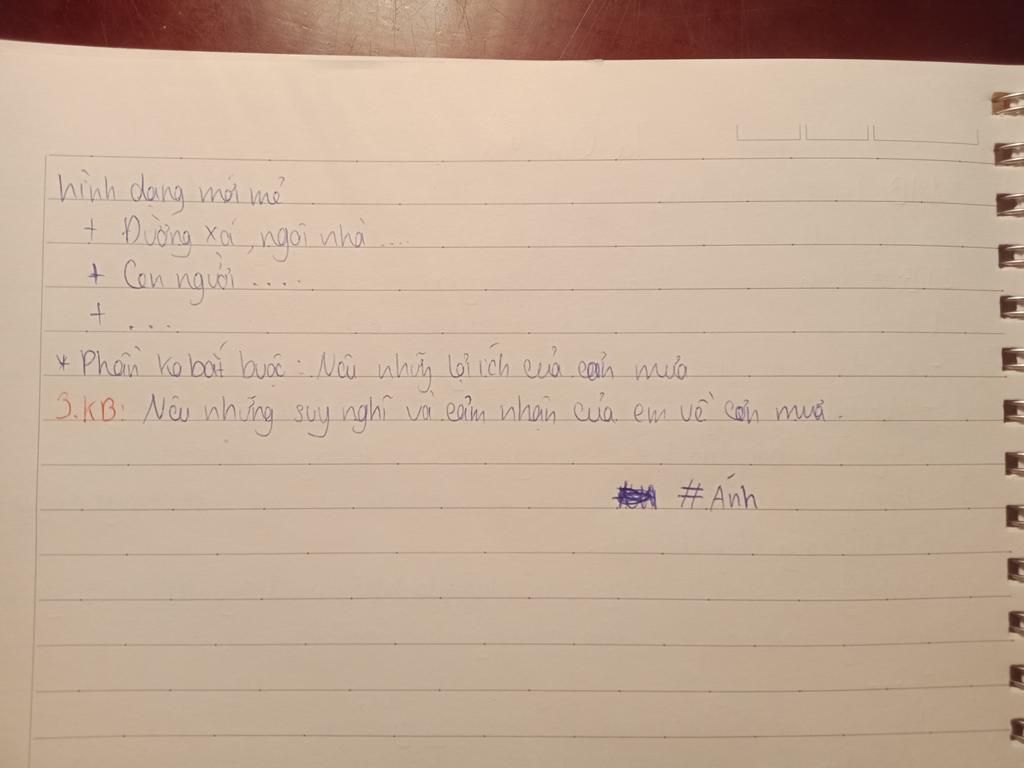 hình dạng mới mẻ
+ Đường xá, ngôi nhà ....
+ Con người ....
+ ....
* Phần ko bắt buộc: Nêu những lợi ích của cơn mưa
3.KB: Nêu những suy nghĩ và cảm nhận của em về cơn mưa.
#Ánh